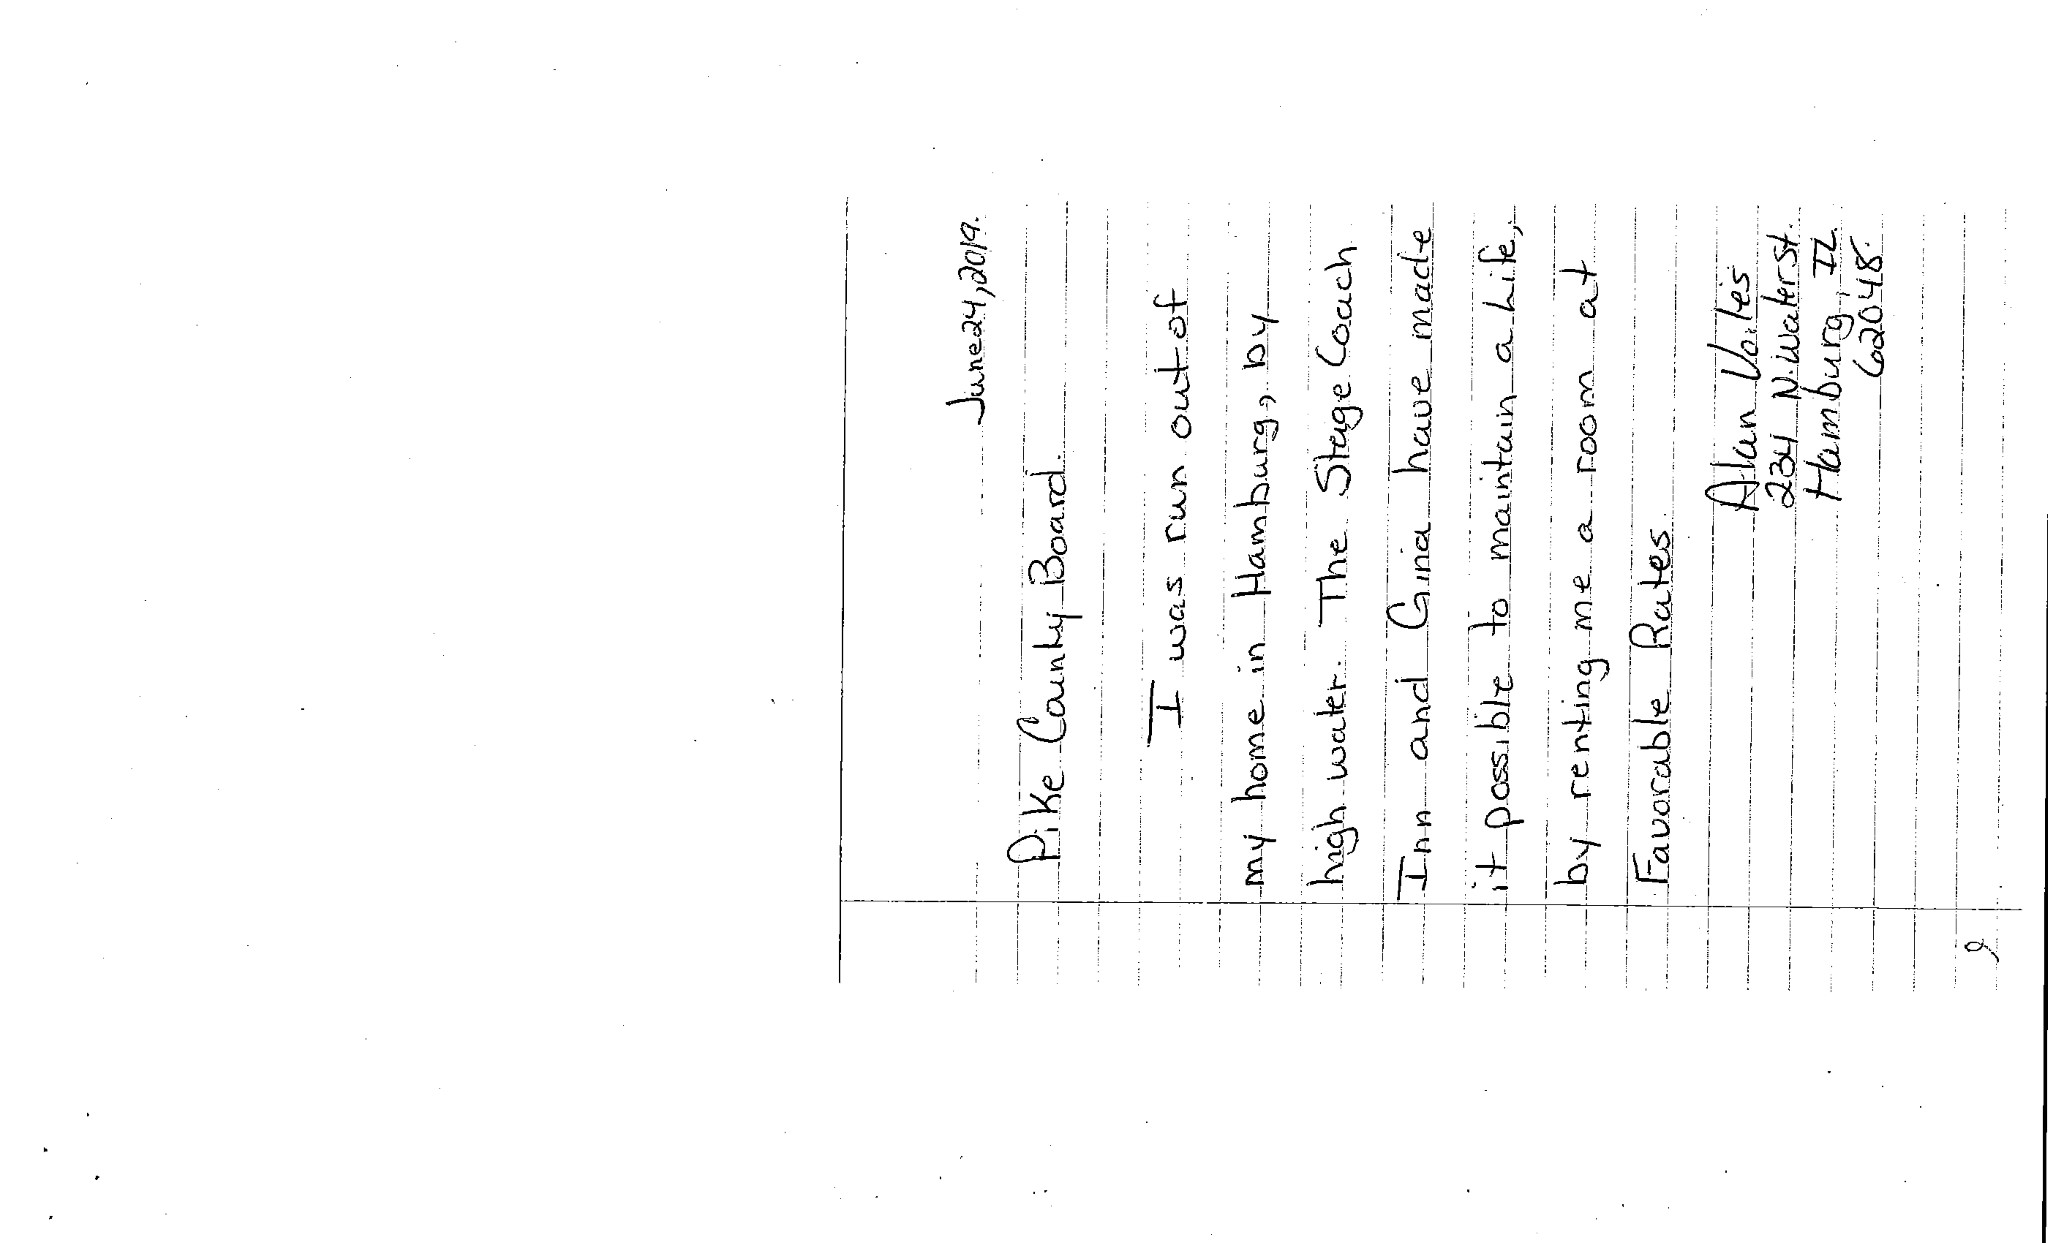 June 24, 2019.
Pike County Board.
I was run out of
my home in Hamburg, by
high water. The Stage Coach
Inn and Gina have made
it possible to maintain a Life,
by renting me a room at
Favorable Rates
Alan Voiles
234 N. Water St.
Hamburg, IL
62048.